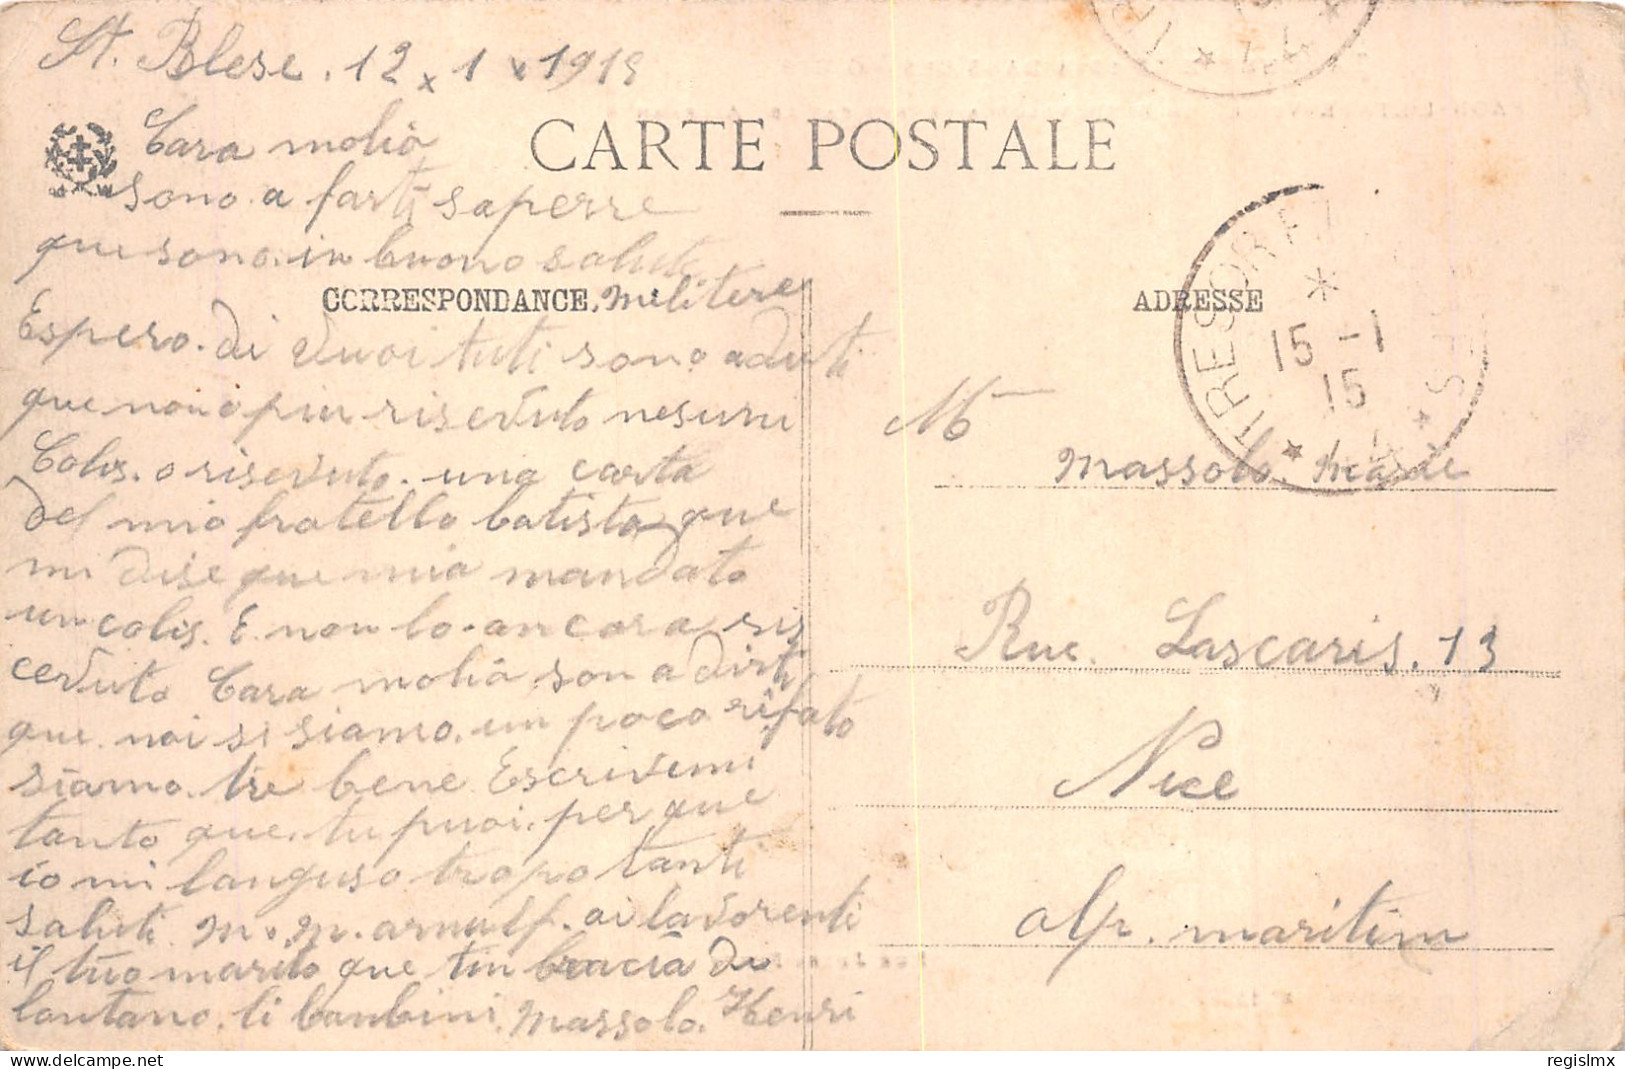 St. Blese. 12 x 1 x 1915
CARTE POSTALE
Cara molia
sono a farti saperre
que sono in buono salute
CORRESPONDANCE. militere
ADRESSE
Espero. di Vuoi tuti sono a dirti
que non o piu riseVuto nesunu
Colis. o riseVuto. una carta
del mio fratello batista que
mi dise que mia mandato
un colis. E. non lo. ancora ris
ceVuto Cara molia son a dirti
que noi si siamo. un poco rifato
siamo. tre bene Escrivemi
tanto que. tu puoi. per que
io mi languso tropo tanti
saluti M. M. arnulf. ai laVorenti
il tuo marito que tin bracia da
lontano. li banbini. Massolo. Henri
TRESOR ET POSTES
* 15 -1 15 *
M
Massolo. Marie
Rue. Lascaris. 13
Nice
alp. maritim
regislmx